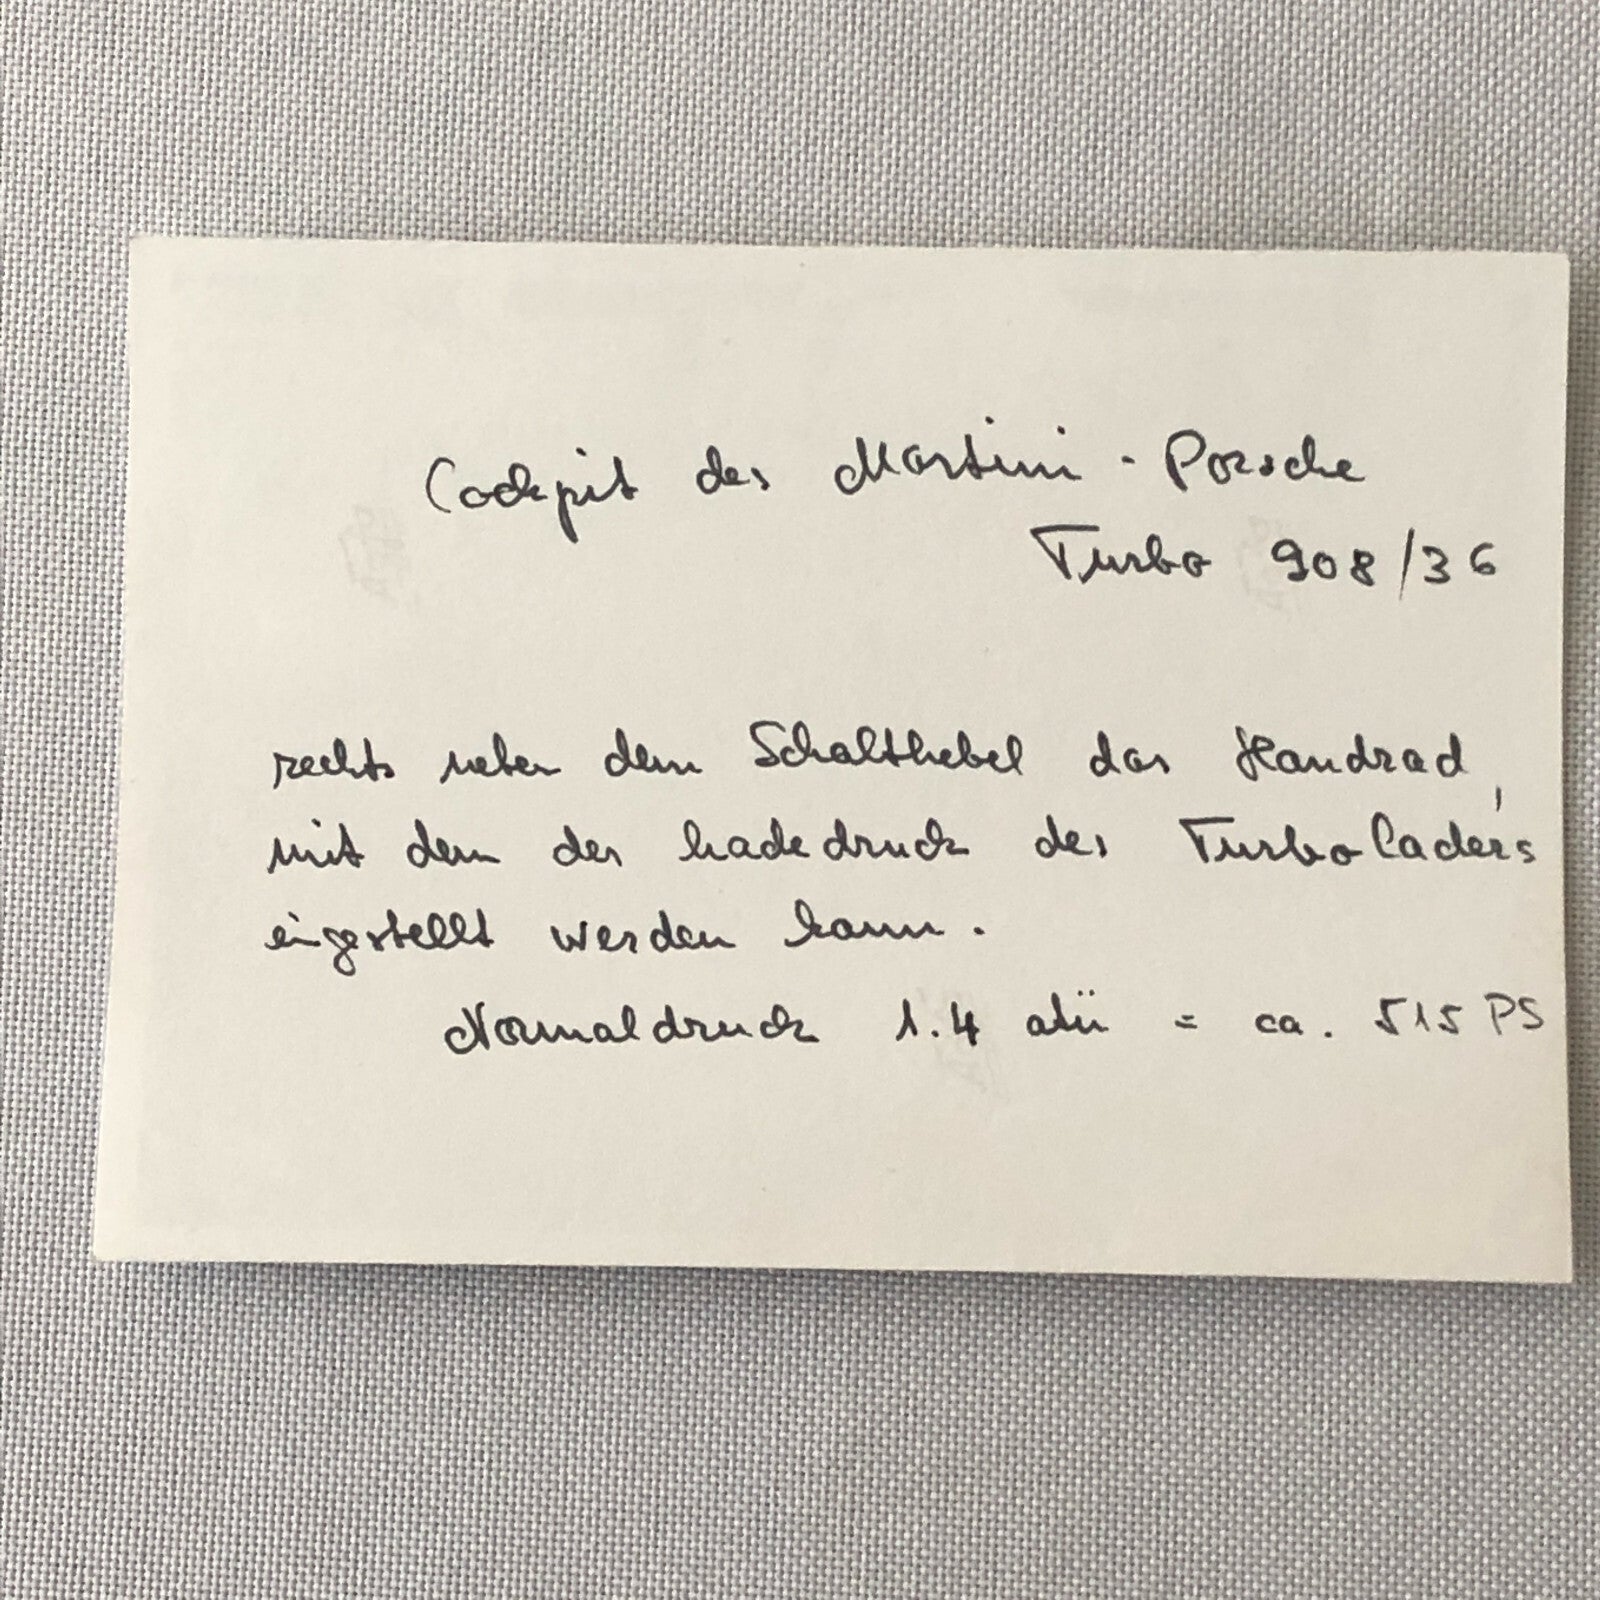 Cockpit des Martini - Porsche
Turbo 908/36
rechts neben dem Schalthebel das Handrad,
mit dem der Ladedruck des Turboladers
eingestellt werden kann.
Normaldruck 1.4 atü = ca. 515 PS